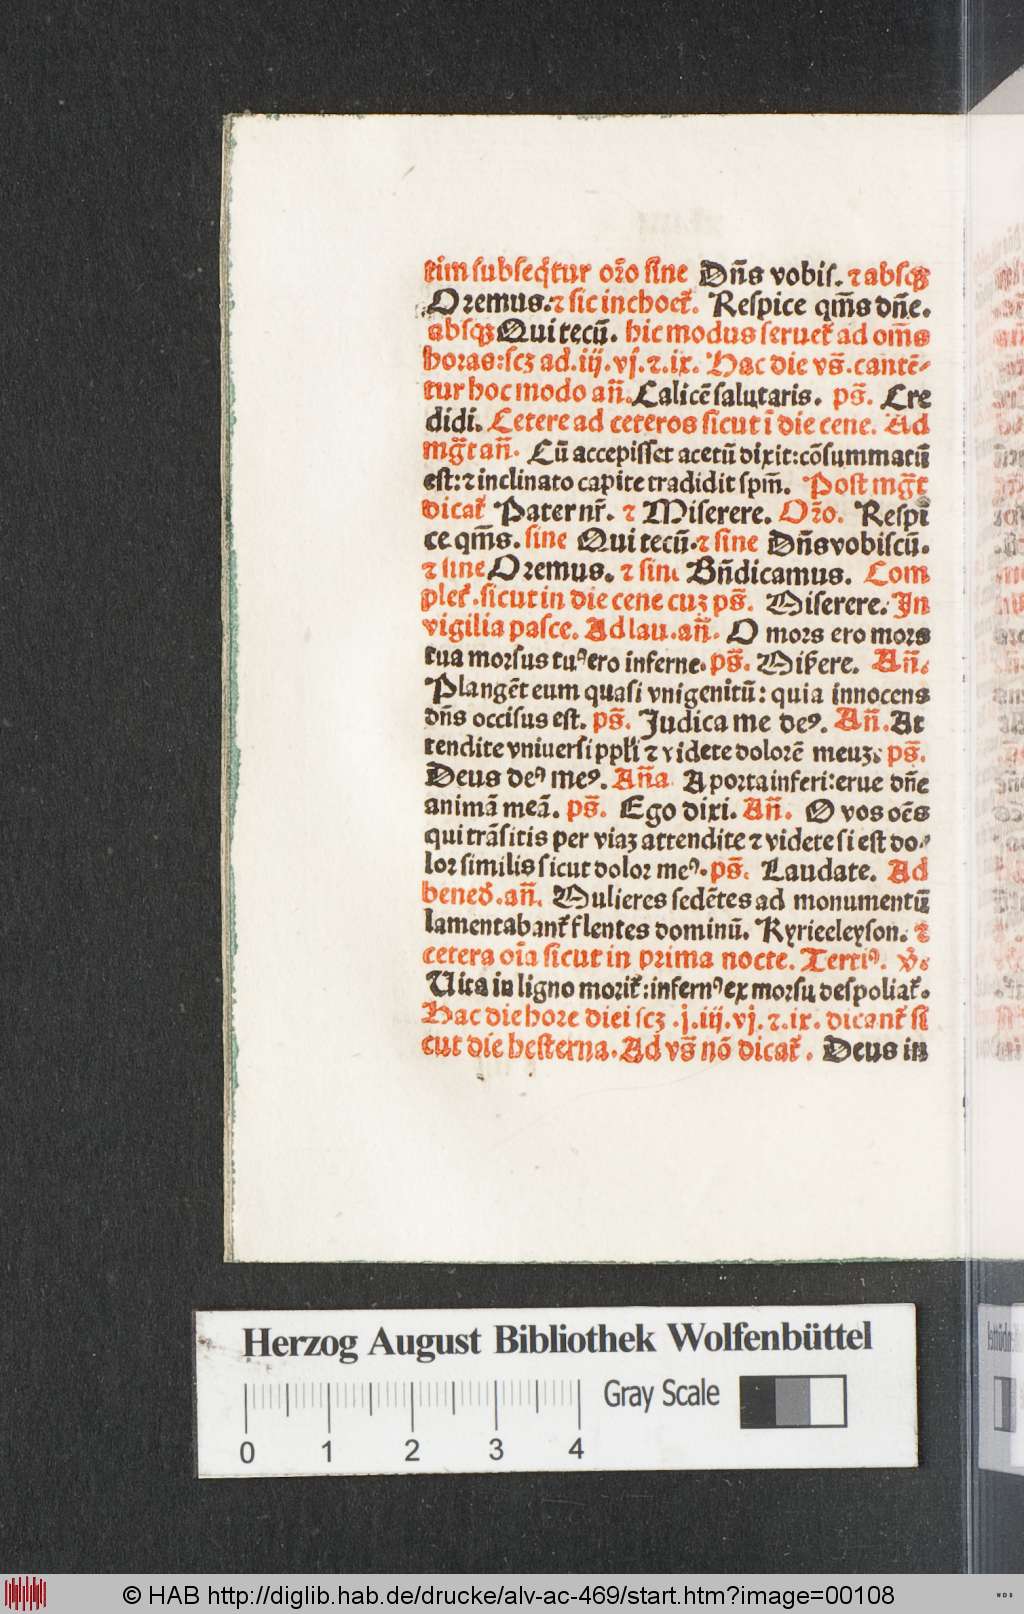 tim subseq̄tur or̄o sine Dn̄s vobis. ⁊ absqꝫ
Oremus. ⁊ sic inchoet᷑. Respice qm̄s dn̄e.
absqꝫ Qui tecū. hic modus seruet᷑ ad om̄s
horas: scꝫ ad .iij. vj. ⁊ .ix. Hac die vs̄. cantē-
tur hoc modo an̄. Calicē salutaris. ps̄. Cre
didi. Cetere ad ceteros sicut ī die cene. Ad
mg̅t an̄. Cū accepisset acetū dixit: cōsummatū
est: ⁊ inclinato capite tradidit spm̄. Post mg̅t
dicat᷑ Pater nr̄. ⁊ Miserere. Or̄o. Respi
ce qm̄s. sine Qui tecū. ⁊ sine Dn̄s vobiscū.
⁊ sine Oremus. ⁊ sine Bn̄dicamus. Com
plet᷑. sicut in die cene cuꝫ ps̄. Miserere. In
vigilia pasce. Ad lau. an̄. O mors ero mors
tua morsus tuꝰ ero inferne. ps̄. Mis̄ere. An̄.
Plangēt eum quasi vnigenitū: quia innocens
dn̄s occisus est. ps̄. Judica me deꝰ. An̄. At
tendite vniuersi pp̄li ⁊ videte dolorē meuꝫ. ps̄.
Deus deꝰ meꝰ. An̄a A porta inferi: erue dn̄e
animā meā. ps̄. Ego dixi. An̄. O vos oēs
qui trāsitis per viaꝫ attendite ⁊ videte si est do-
lor similis sicut dolor meꝰ. ps̄. Laudate. Ad
bened̄. an̄. Mulieres sedētes ad monumentū
lamentabant᷑ flentes dominū. Kyrieeleyson. ⁊
cetera oīa sicut in prima nocte. Tertiꝰ. v̊.
Uita in ligno morit᷑: infernꝰ ex morsu despoliat᷑.
Hac die hore diei scꝫ .j. iij. vj. ⁊. ix. dicant᷑ si
cut die hesterna. Ad vs̄ nō dicat᷑. Deus in
Herzog August Bibliothek Wolfenbüttel
Gray Scale
0 1 2 3 4
© HAB http://diglib.hab.de/drucke/alv-ac-469/start.htm?image=00108